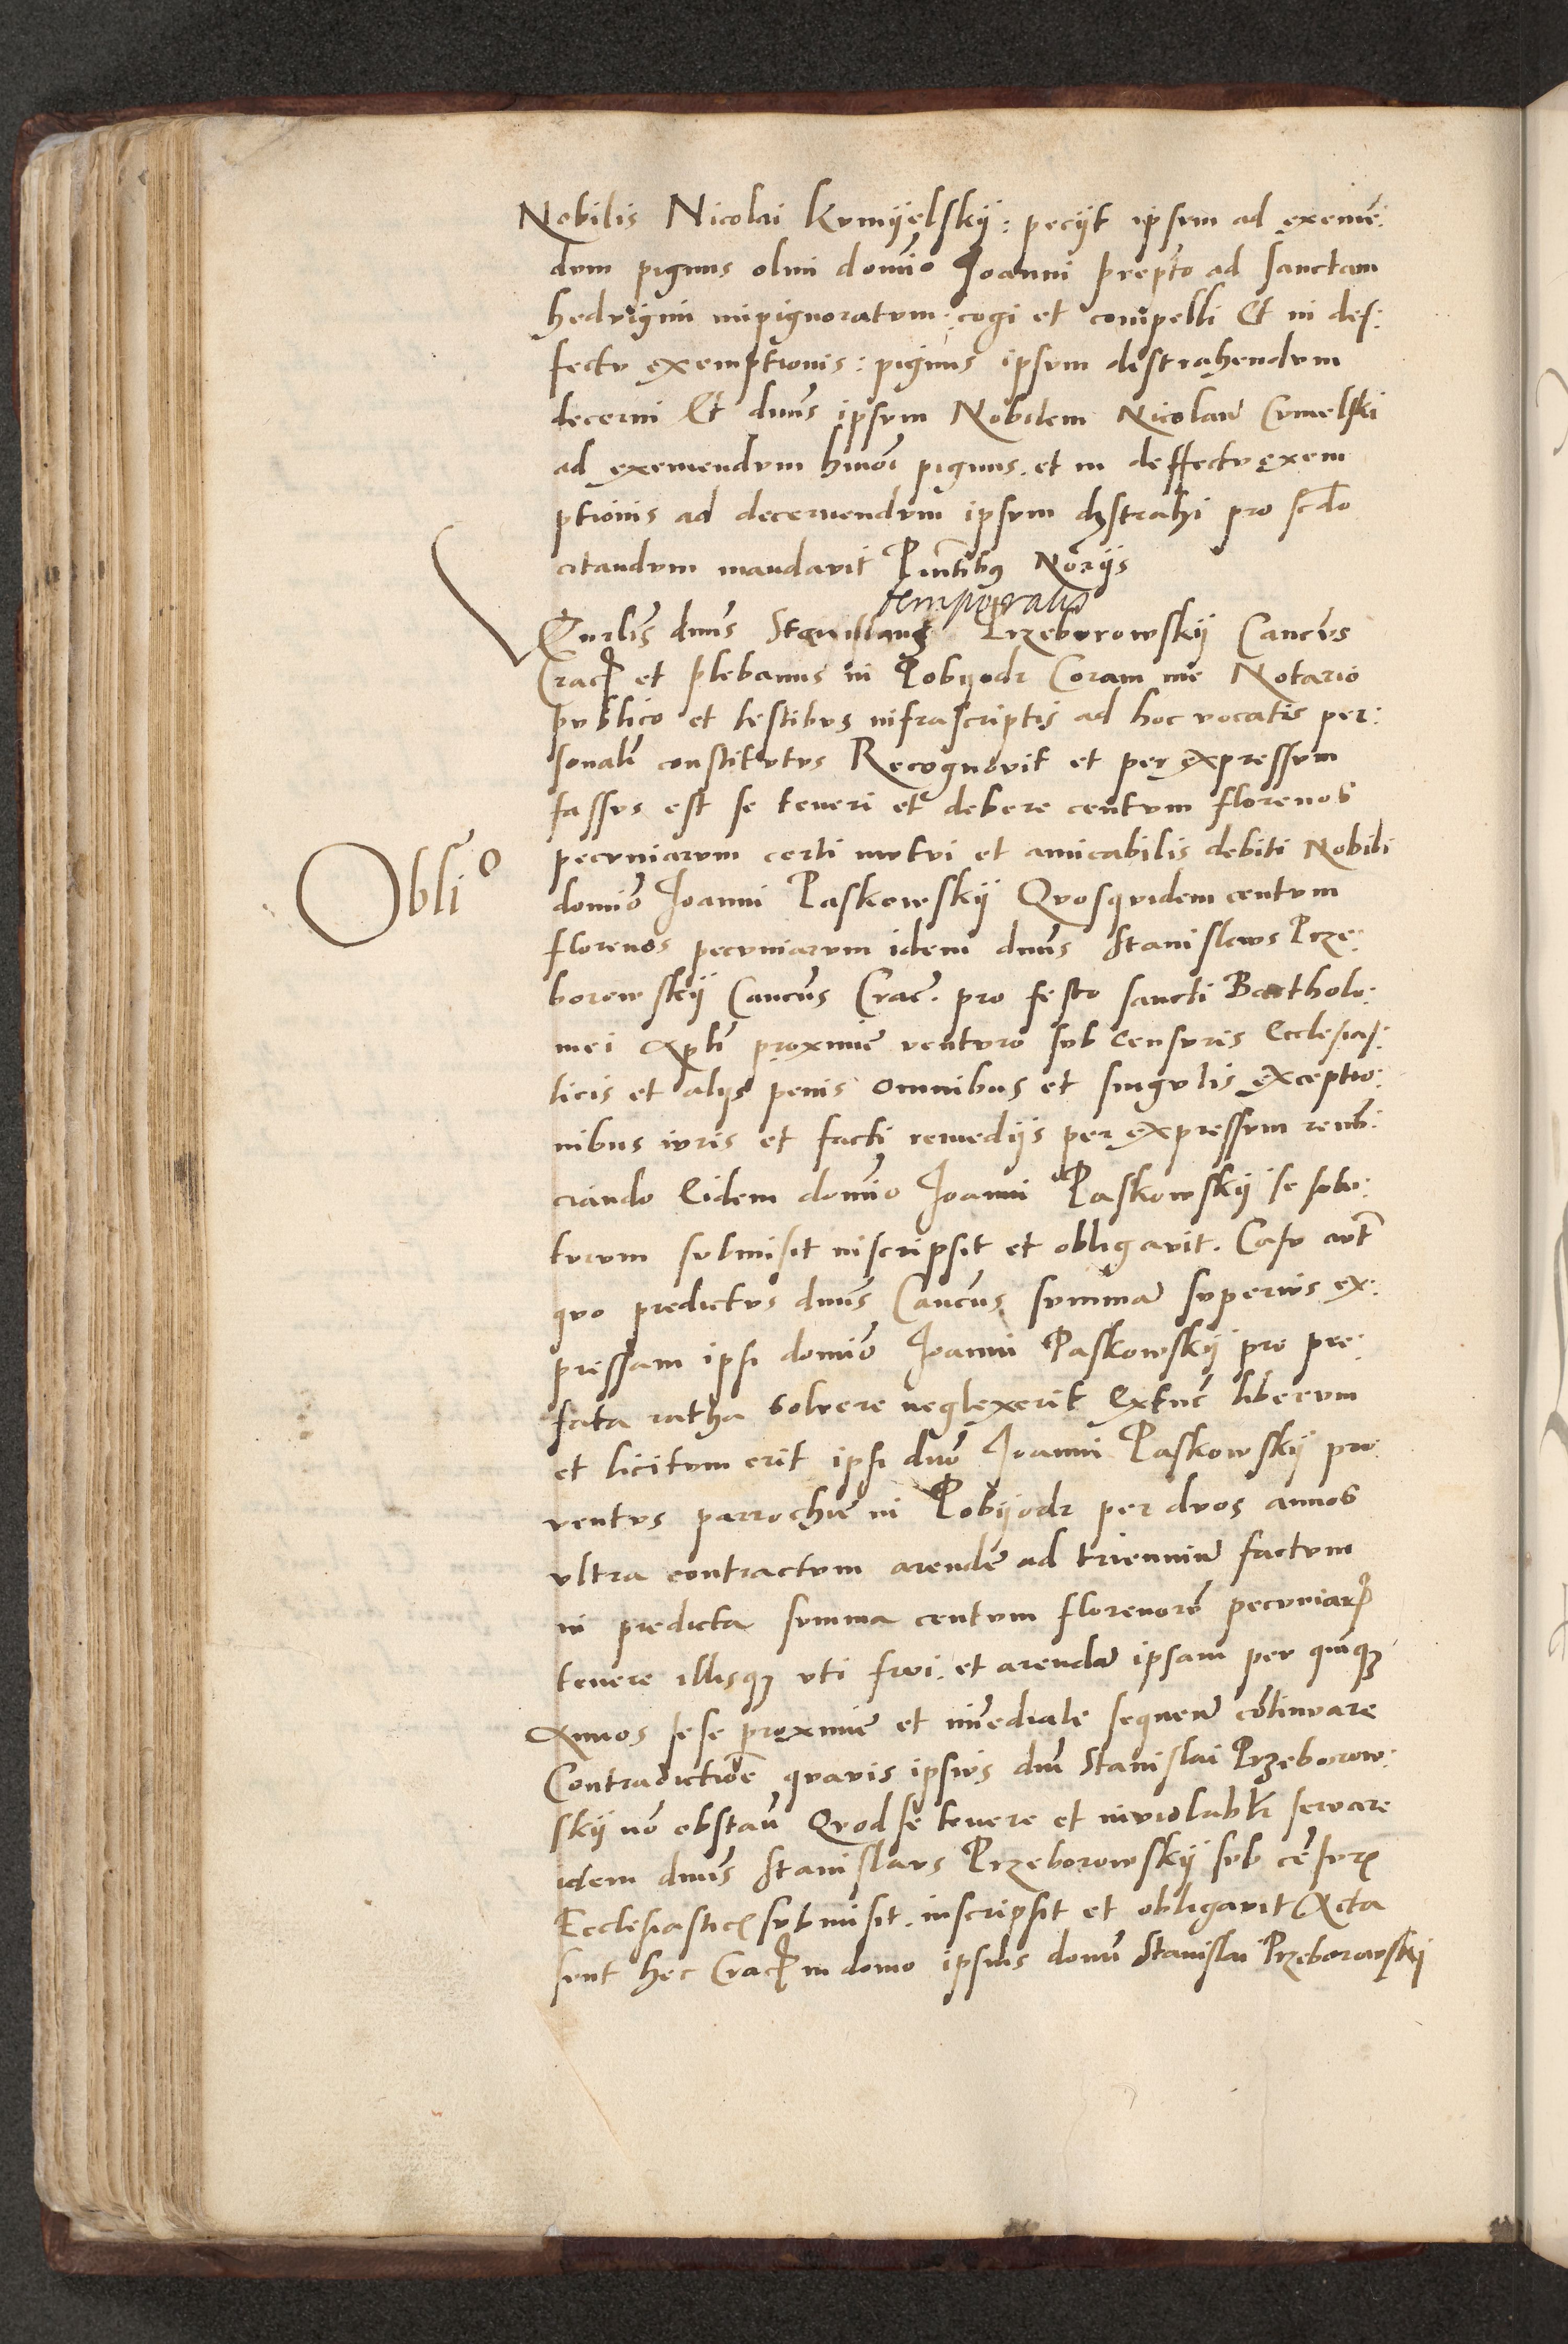 Nobilis Nicolai Kvmÿelskÿ: peciit ipsvm ad exemē:
dvm pignus olim domīo Joanni prep̄to ad sanctam
hedvigim impignoratvm: cogi et compelli Et in def:
fectv exemptionis: pignus ipsvm destrahendvm
decerni Et dnūs ipsvm Nobilem Nicolaū Cvmelski
ad exemendvm hmōi pignus. et in deffectv exem
ptionis ad decernendvm ipsvm distrahi pro scd̄o
citandvm mandavit Pn̄tibus Nōriis
temporalis
Eurlis dnūs Stanislaus Przeborowskÿ Cancvs
Crac̄ et plebanus in Lobÿodz Coram me Notario
pvblico et testibvs infrascriptis ad hoc vocatis per:
sonalr̄ constitvtvs Recognovit et per expressvm
fassvs est se teneri et debere centvm florenos
pecvniarvm certi mvtvi et amicabilis debiti Nobili
Oblio
domīo Joanni Paskowskÿ Qvosqvidem centvm
florenos pecvniarvm idem dnūs Stanislavs Prze:
borowskÿ Cancūs Crac̄. pro festo sancti Bartholo:
mei Apl̄i proxime ventvro svb Censvris Ecclesias:
ticis et aliis penis omnibus et singvlis exceptio:
nibus ivris et facti remediis per expressvm renv̄:
ciando Eidem domīo Joanni Paskowskÿ se solv:
tvrvm svbmisit inscripsit et obligavit. Casv avt̄
qvo predictvs dnūs Cancūs svmmā svperivs ex:
pressam ipsi domīo Joanni Paskowskÿ pro pre:
fata ratha solvere neglexerit Extūc libervm
et licitvm erit ipsi dnō Joanni Paskowskÿ pro:
ventvs parrochie in Lobÿodz per dvos annos
vltra contractvm arende ad trienniū factvm
in predicta svmma centvm florenorū pecvniarꝝ
tenere illisqꝫ vti frvi. et arendā ipsam per qninqꝫ
Annos sese proxime et īmediate sequen̄ cōtinvare
Contradictiōe qvavis ipsivs dnī Stanislai Przeborow:
skÿ nō obstan̄ Qvod se tenere et inviolabłr servare
idem dnūs Stanislavs Przeborowskÿ svb cēsvris
Ecclesiasticis svbmisit. inscripsit et obligavit Acta
svnt hec Crac̄ in domo ipsius domī Stanislai Przeborowskÿ